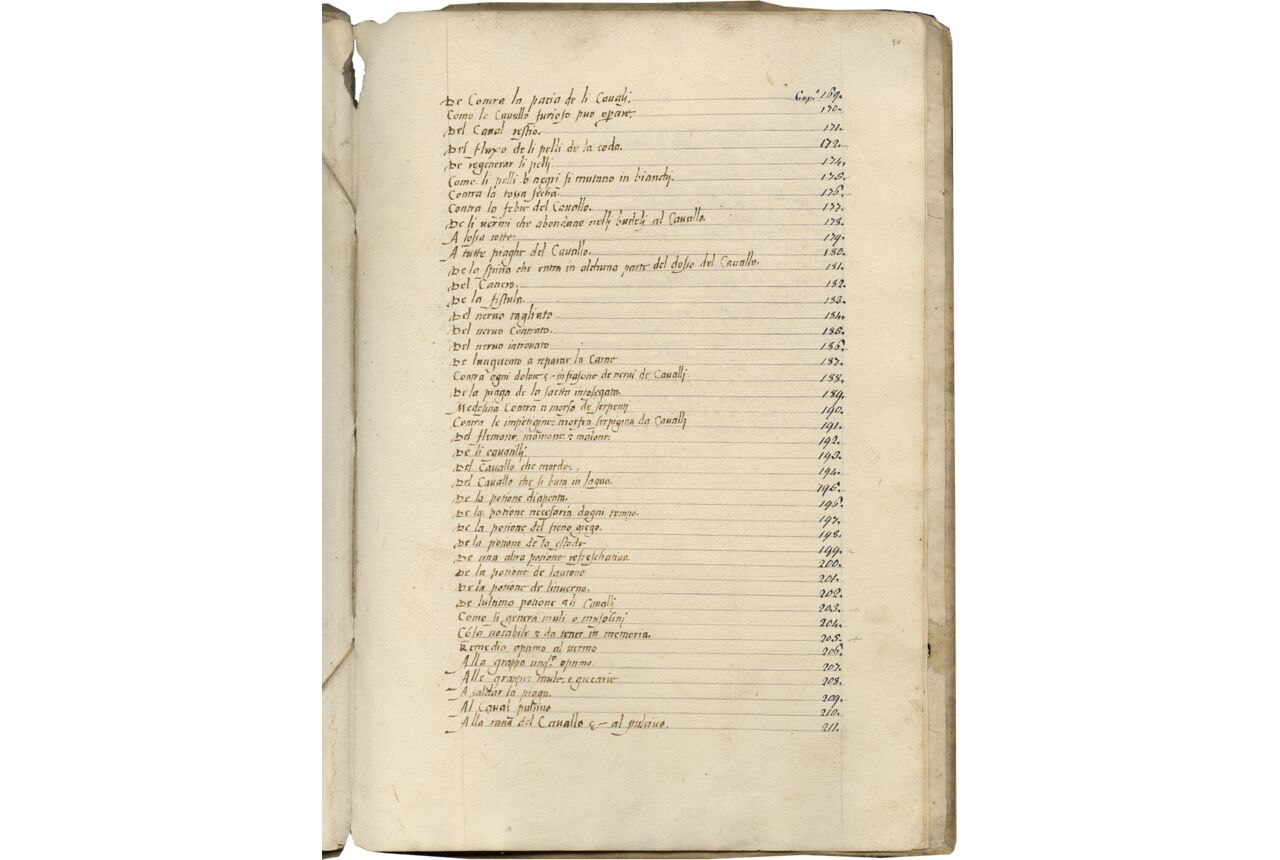 50
De Contra la pacia de li Cavali. Cap.º 169.
Como lo Cavallo furioso puo oprare. 170.
Del Caval restio. 171.
Del fluxo de li pelli de la coda. 172.
De regenerar li pelli 174.
Como li pelli negri si mutano in bianchi. 175.
Contra la tossa secha 176.
Contra la febre del Cavallo. 177.
De li vermi che abondano nelli budeli al Cavallo. 178.
A lossa rotte. 179.
A tutte piaghe del Cavallo. 180.
De la spina che entra in alchuna parte del dosso del Cavallo. 181.
Del Cancro. 182.
De la fistula. 183.
Del nervo tagliato 184.
Del nervo Contrato. 185.
Del nervo introvato 186.
De lunguento a reparar la Carne 187.
Contra ogni dolore & infiasone de nervi de Cavalli 188.
De la piaga de la saetta intosegata. 189.
Medesina Contra a morso de serpenti 190.
Contra le impetigine morfea serpigina da Cavalli 191.
Del flemone 192.
De li 193.
Del Cavallo che morde. 194.
Del Cavallo che si buta in laqua. 195.
De la potione diapenta. 196.
De la potione necesaria dogni tempo. 197.
De la potione del fieno grego. 198.
De la potione de la estade 199.
De una altra potione refreschativa. 200.
De la potione de lautono 201.
De la potione de linverno. 202.
De lultima potione a li Cavalli 203.
Como si genera muli o musolini 204.
Cosa notabile & da tener in memoria. 205.
Remedio optimo al vermo 206.
Alla grappa ung.º optimo 207.
Alle grappe mule e 208.
A saldar la piaga. 209.
Al Caval pulsivo 210.
Alla del Cavallo & al pulsivo. 211.